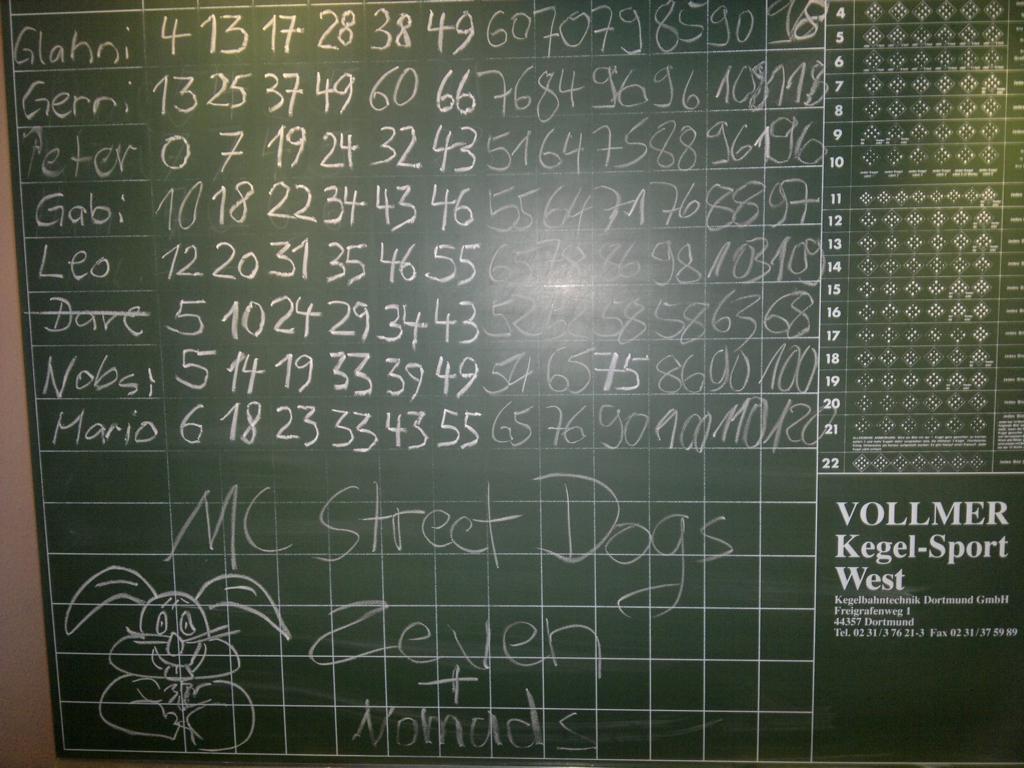 Glahni 4 13 17 28 38 49 60 70 79 85 90 98
Gerri 13 25 37 49 60 66 76 84 96 96 108 118
Peter 0 7 19 24 32 43 51 64 75 88 96 196
Gabi 10 18 22 34 43 46 55 64 71 76 88 97
Leo 12 20 31 35 46 55 65 78 86 98 103 109
Dave 5 10 24 29 34 43 52 52 58 58 63 68
Nobsi 5 14 19 33 39 49 54 65 75 86 90 100
Mario 6 18 23 33 43 55 65 76 90 100 110 120
MC Street Dogs
Zeven
+
Nomads
4
5
6
7
8
9
10
11
12
13
14
15
16
17
18
19
20
21
22
VOLLMER
Kegel-Sport
West
Kegelbahntechnik Dortmund GmbH
Freigrafenweg 1
44357 Dortmund
Tel. 02 31/3 76 21-3 Fax 02 31/37 59 89